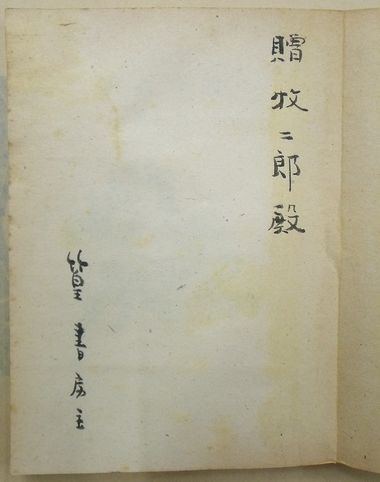 贈牧二郎殿
篁書房主